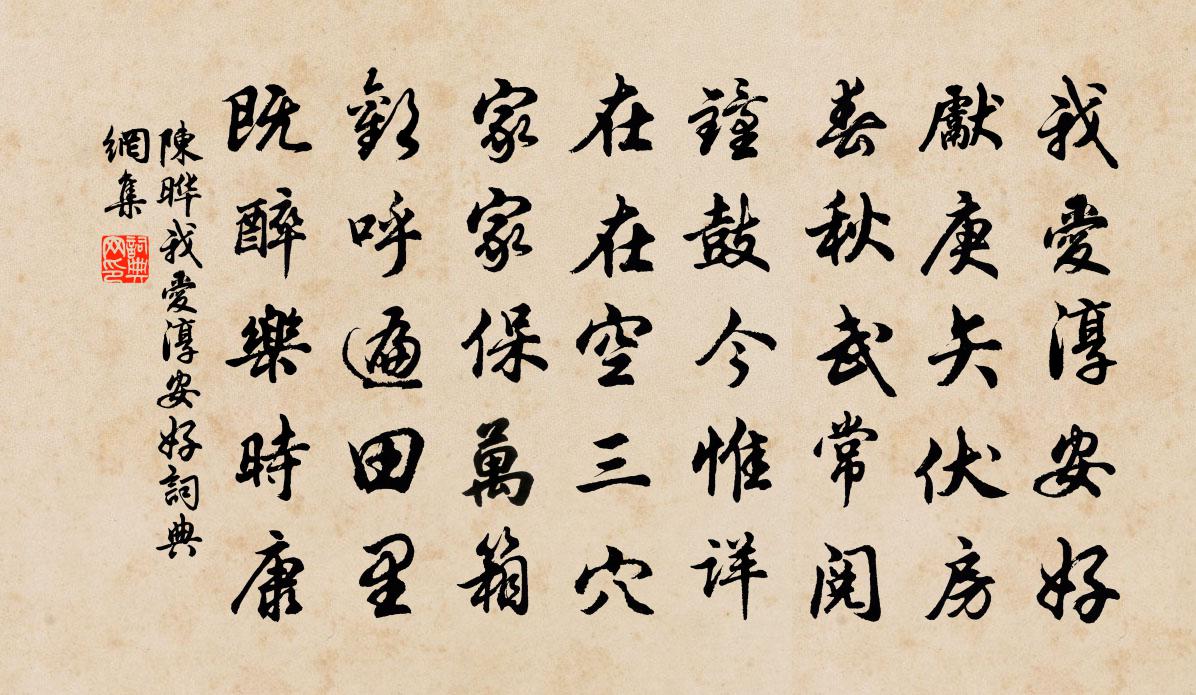 我愛淳安好
獻庚矢伏房
春秋武常閱
鐘鼓今惟詳
在在空三穴
家家保萬箱
歡呼遍田里
既醉樂時康
陳晔我愛淳安好詞典
網集
詞典网印